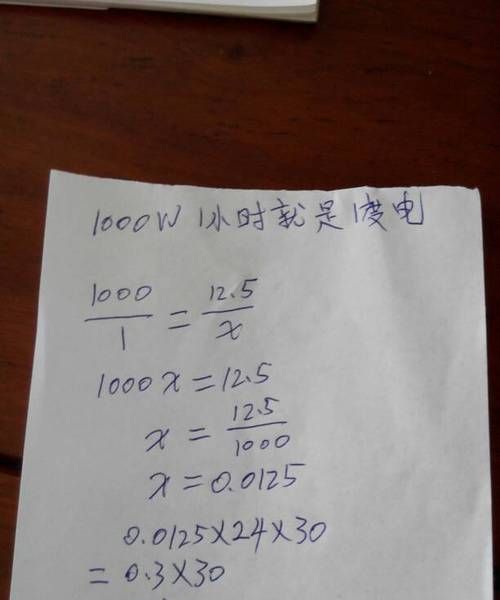 1000W 1小时就是1度电
1000/1 = 12.5/x
1000x = 12.5
x = 12.5/1000
x = 0.0125
0.0125×24×30
= 0.3×30